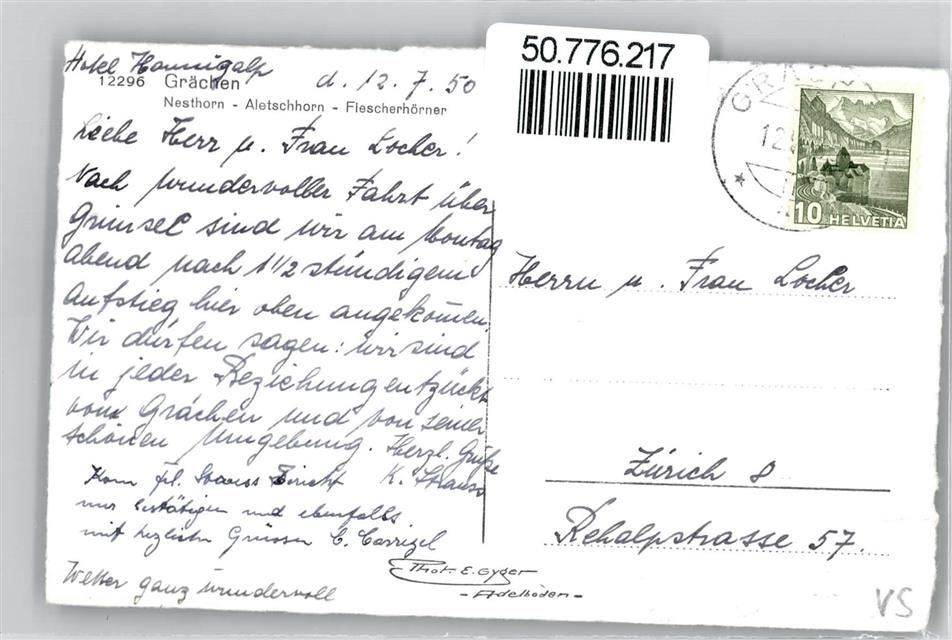 50.776.217
Hotel Hannigalp
12296 Grächen d. 12. 7. 50
Nesthorn - Aletschhorn - Fiescherhörner
Liebe Herr u. Frau Locher!
Nach wundervoller Fahrt über
Grimsel sind wir am Montag
abend nach 1 1/2 stündigem
Aufstieg hier oben angekom̄en.
Wir dürfen sagen: wir sind
in jeder Beziehung entzückt
vom Grächen und von seiner
schönen Umgebung. Herzl. Grüße
K. Strauss
Kann frl. Bericht
nur bestätigen und ebenfalls
mit herzlichen Grüssen C.
Wetter ganz wundervoll
GRÄCHEN
12.
10 HELVETIA
Herrn u. Frau Locher
Zürich 8
Rehalpstrasse 57.
Phot. E. Gyger
- Adelboden -
VS